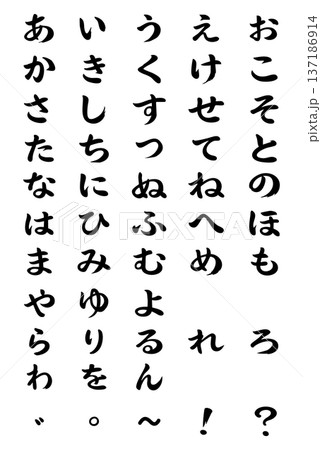 あいうえお
かきくけこ
さしすせそ
たちつてと
なにぬねの
はひふへほ
まみむめも
やゆよ
らりるれろ
わをん
゛。～！？
PIXTA
pixta.jp - 137186914